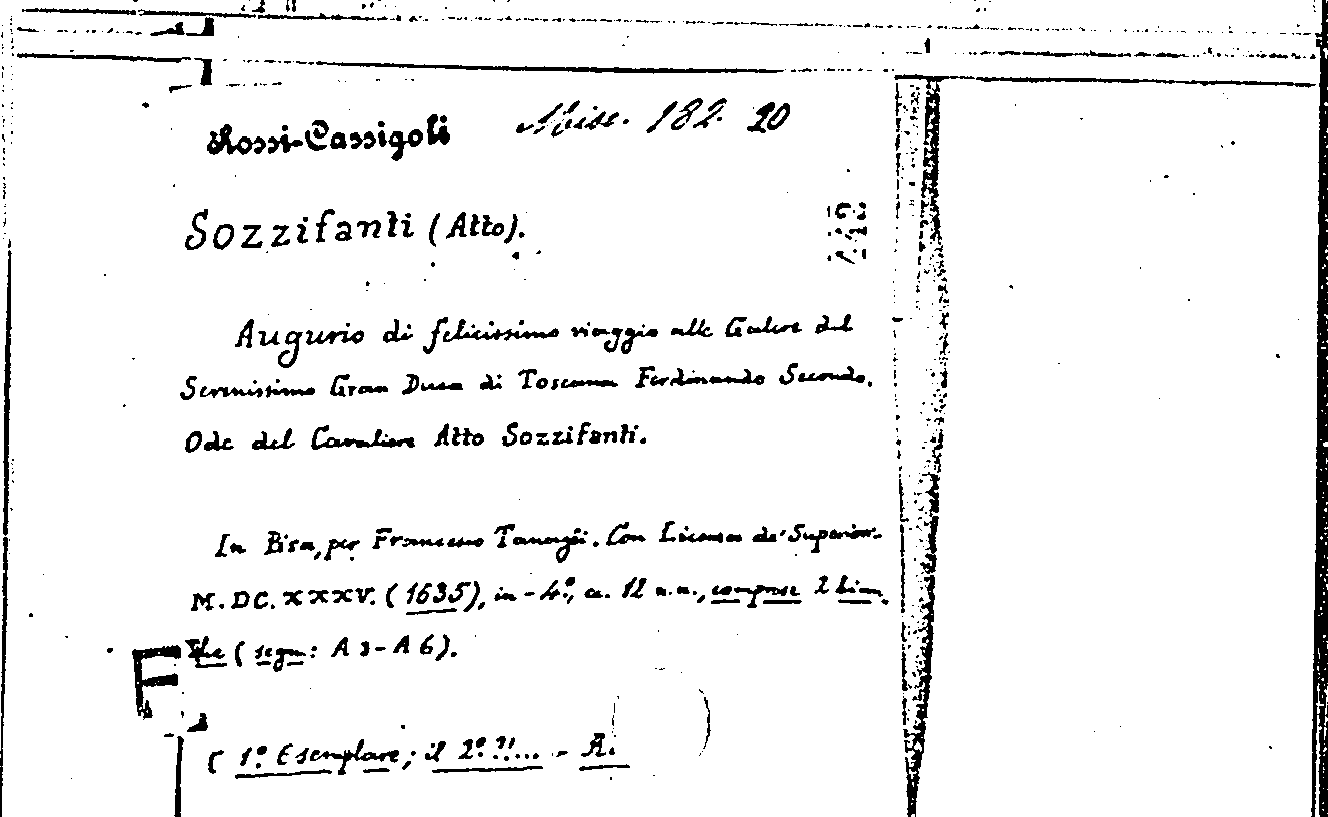 Rossi-Cassigoli Misc. 182. 20
Sozzifanti (Atto).
Augurio di felicissimo viaggio alle Galere del
Serenissimo Gran Duca di Toscana Ferdinando Secondo.
Ode del Cavaliere Atto Sozzifanti.
In Pisa, per Francesco Tanagli. Con Licenza de' Superiori.
M.DC.XXXV. (1635), in-4º, cc. 12 n.n., comprese 2 bian
che (segn: A3-A6).
( 1º Esemplare; il 2º ?!... - A.